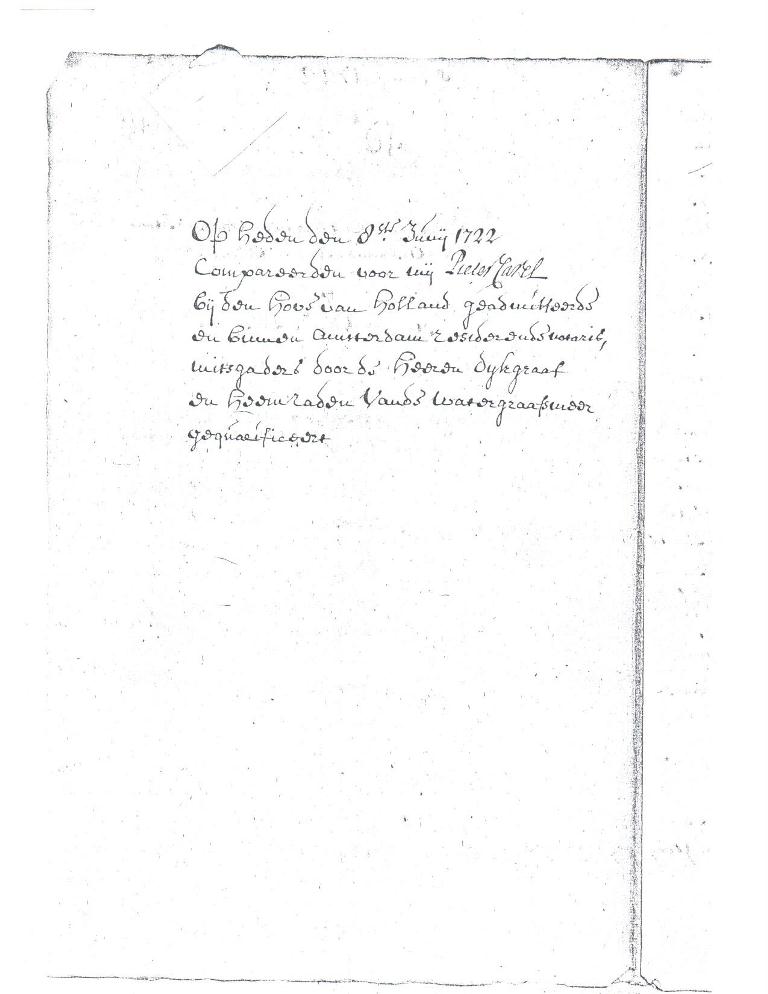 Op heden den 8ste Junij 1722
Compareerden voor mij Pieter
bij den hove van Holland geadmitteerde
en binnen Amsterdam resideerende notaris,
mitsgaders door de Heeren Dykgraaf
en Heemraden Vande Watergraafsmeer
gequalificeert